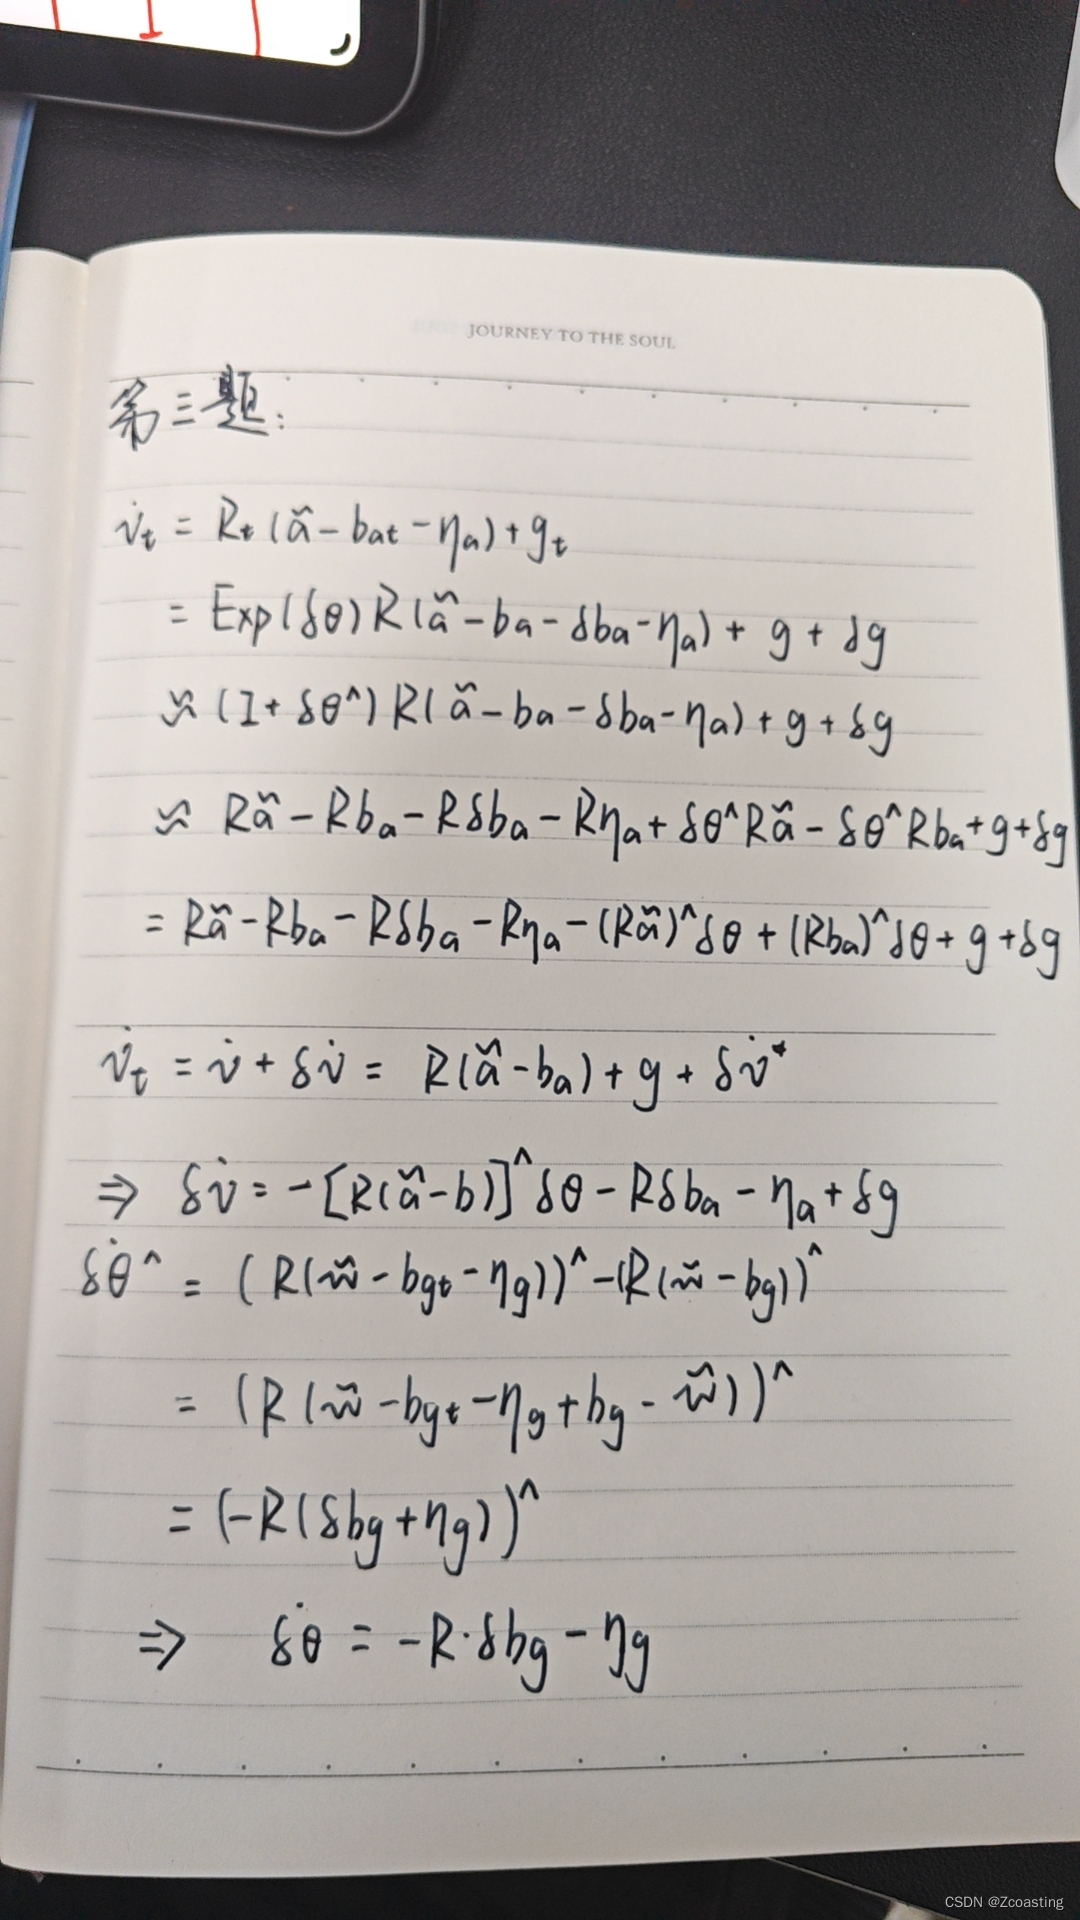 JOURNEY TO THE SOUL
第三题:
v̇t = Rt(ã - bat - ηa) + gt
= Exp(δθ)R(ã - ba - δba - ηa) + g + δg
≈ (I + δθ^)R(ã - ba - δba - ηa) + g + δg
≈ Rã - Rba - Rδba - Rηa + δθ^Rã - δθ^Rba + g + δg
= Rã - Rba - Rδba - Rηa - (Rã)^δθ + (Rba)^δθ + g + δg
v̇t = v̇ + δv̇ = R(ã - ba) + g + δv̇
⇒ δv̇ = -[R(ã - b)]^δθ - Rδba - ηa + δg
δθ̇^ = (R(w̃ - bgt - ηg))^ - (R(w̃ - bg))^
= (R(w̃ - bgt - ηg + bg - w̃))^
= (-R(δbg + ηg))^
⇒ δθ̇ = -R·δbg - ηg
CSDN @Zcoasting